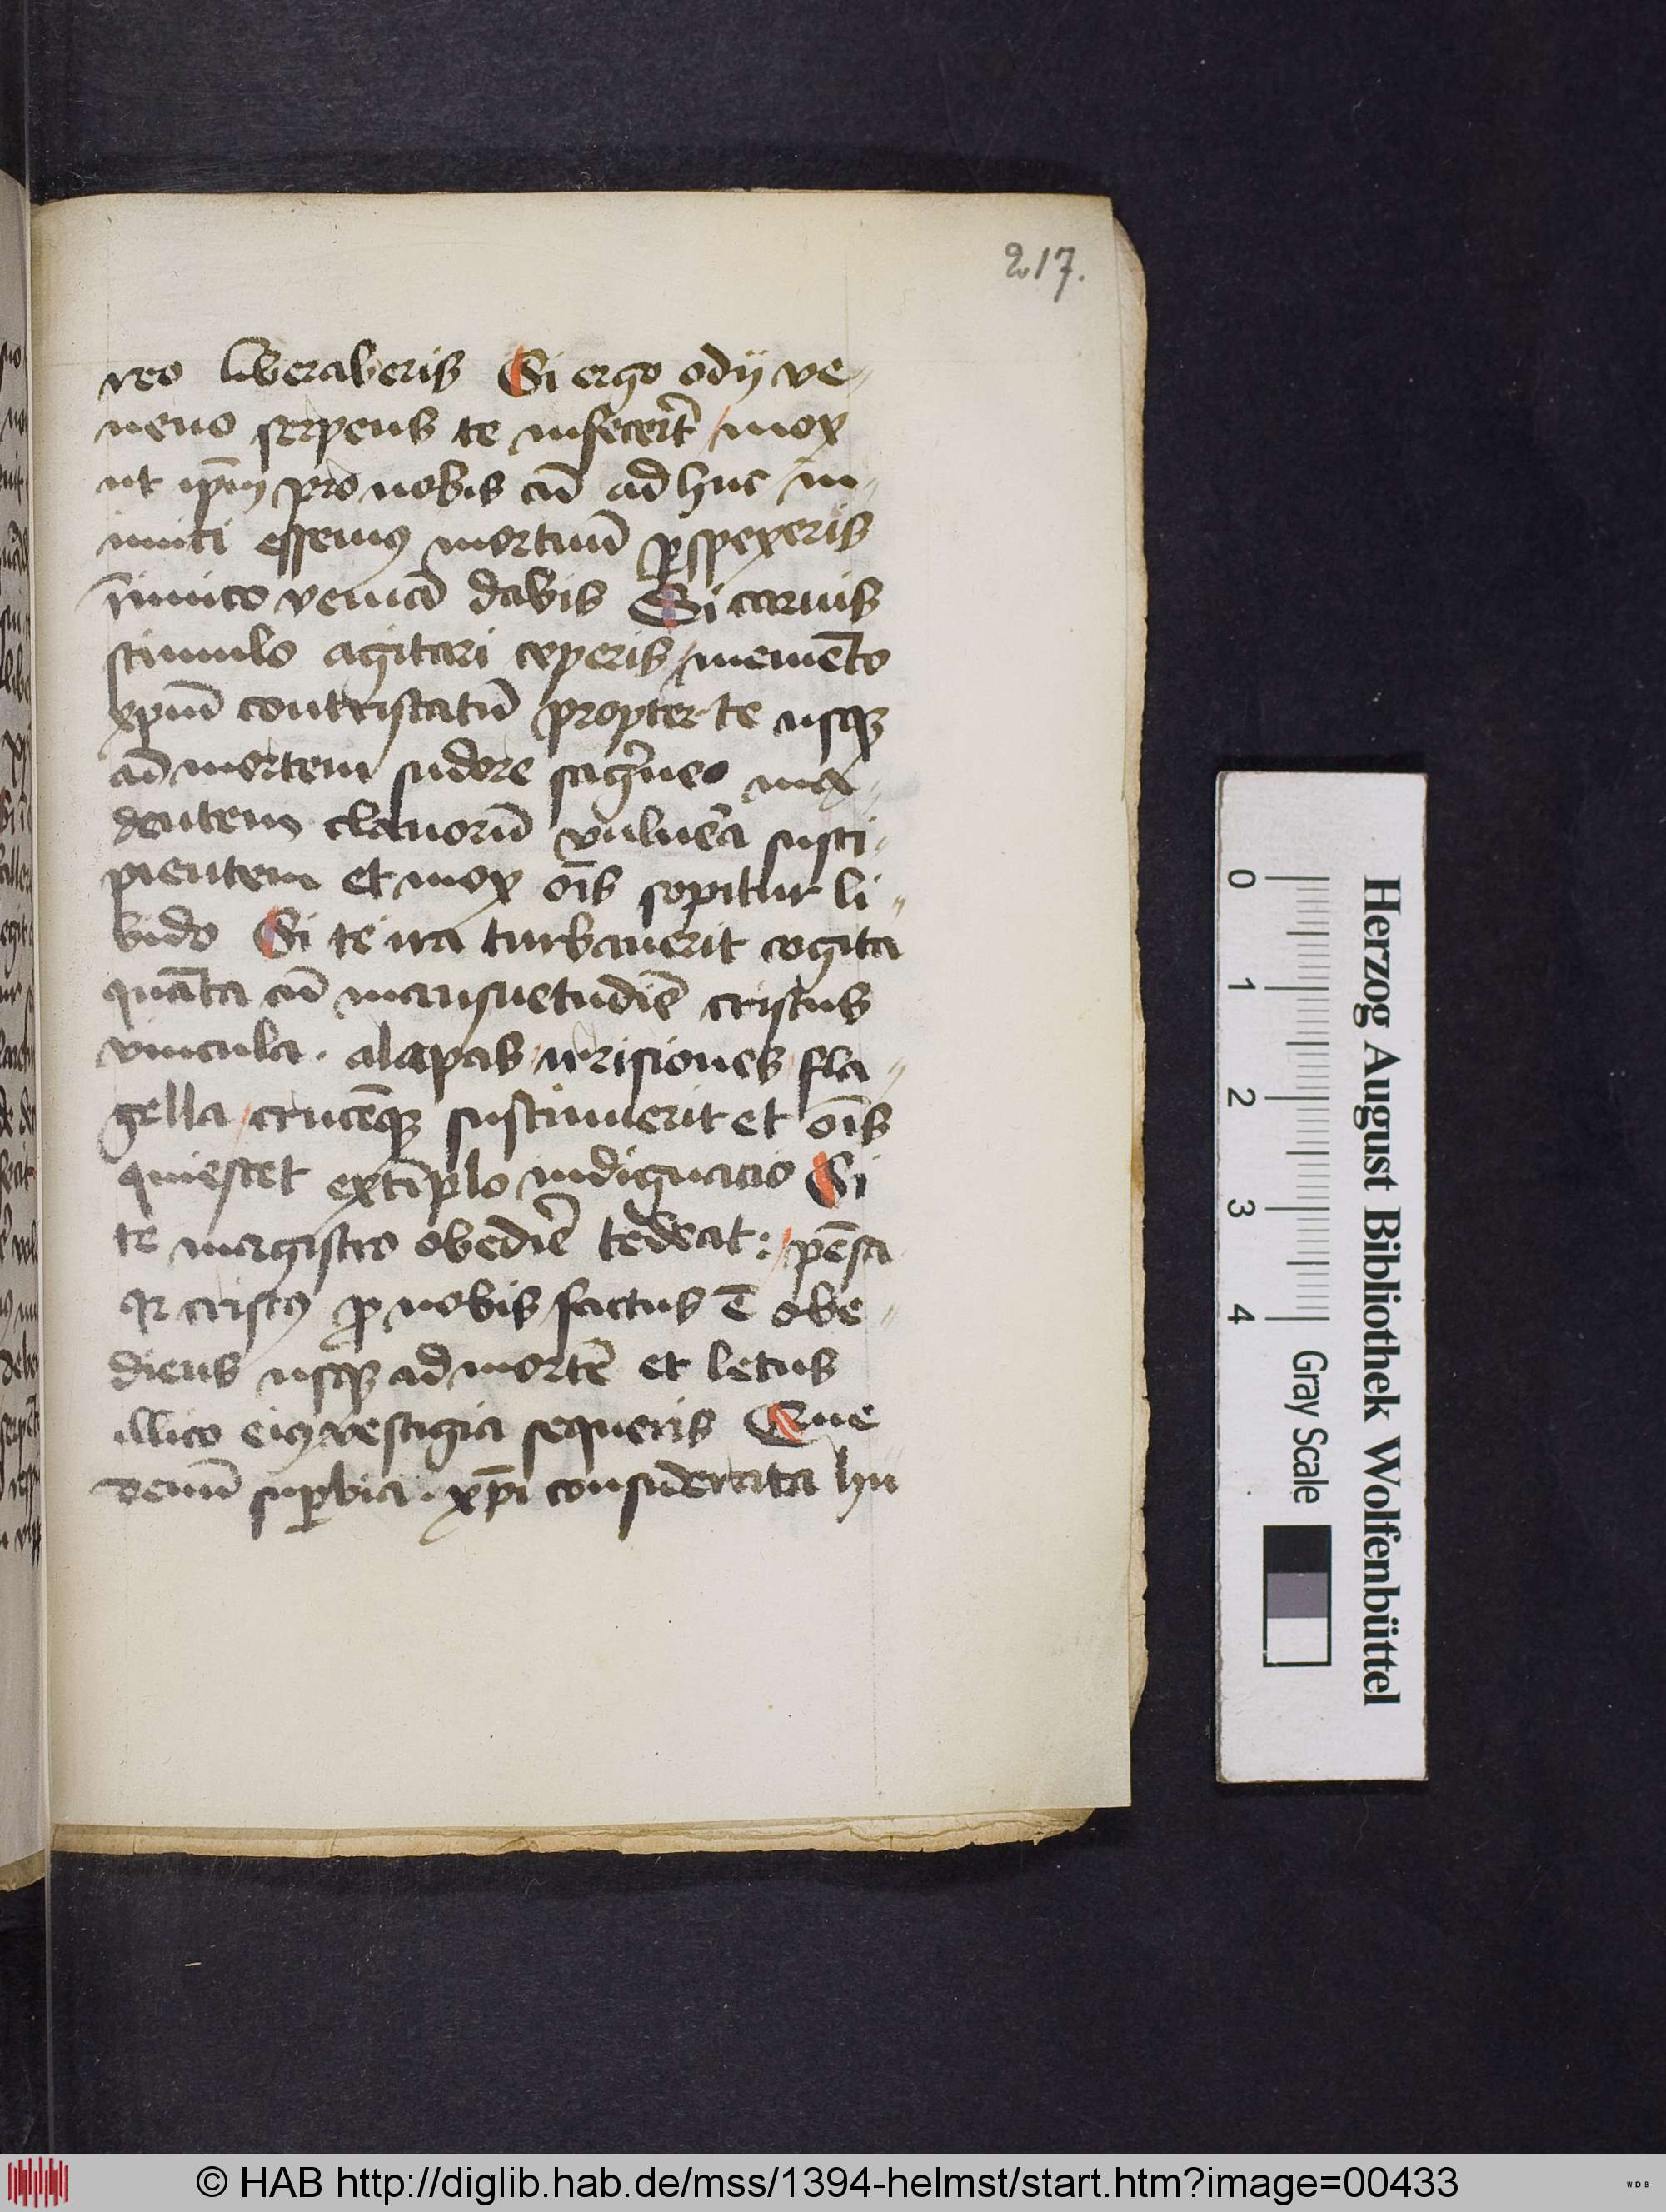 217.
reo liberaberis Si ergo odij ve-
neno serpens te infecerit̄ / mox
ut ip̄m pro nobis cū ad huc in-
imici essemꝰ mortuū ꝑspexeris
īimico veniā dabis Si carnis
stimulo agitari ceperis / memēto
xpm̄ contristatū propter te usqꝫ
ad mortem sudore sāgͥneo ma-
dentem clauorū vulnēa susci-
pientem et mox oīs sopitur li-
bido Si te ira turbauerit cogita
quāta cū mansuetudīe cristus
vincula . alapas irrisiones fla-
gella / crucēqꝫ sustinuerit et oīs
quiescet extīplo indignacio Si
te magistro obedīe tedeat : / pēsa
qꝛ cristꝰ ꝓ nobis factus ē obe-
diens usqꝫ ad mortē et letus
illico eiꝰ vestigia sequeris Que
demū suꝑbia . xp̄i considerata hu
Herzog August Bibliothek Wolfenbüttel
0 1 2 3 4 Gray Scale
© HAB http://diglib.hab.de/mss/1394-helmst/start.htm?image=00433
WDB